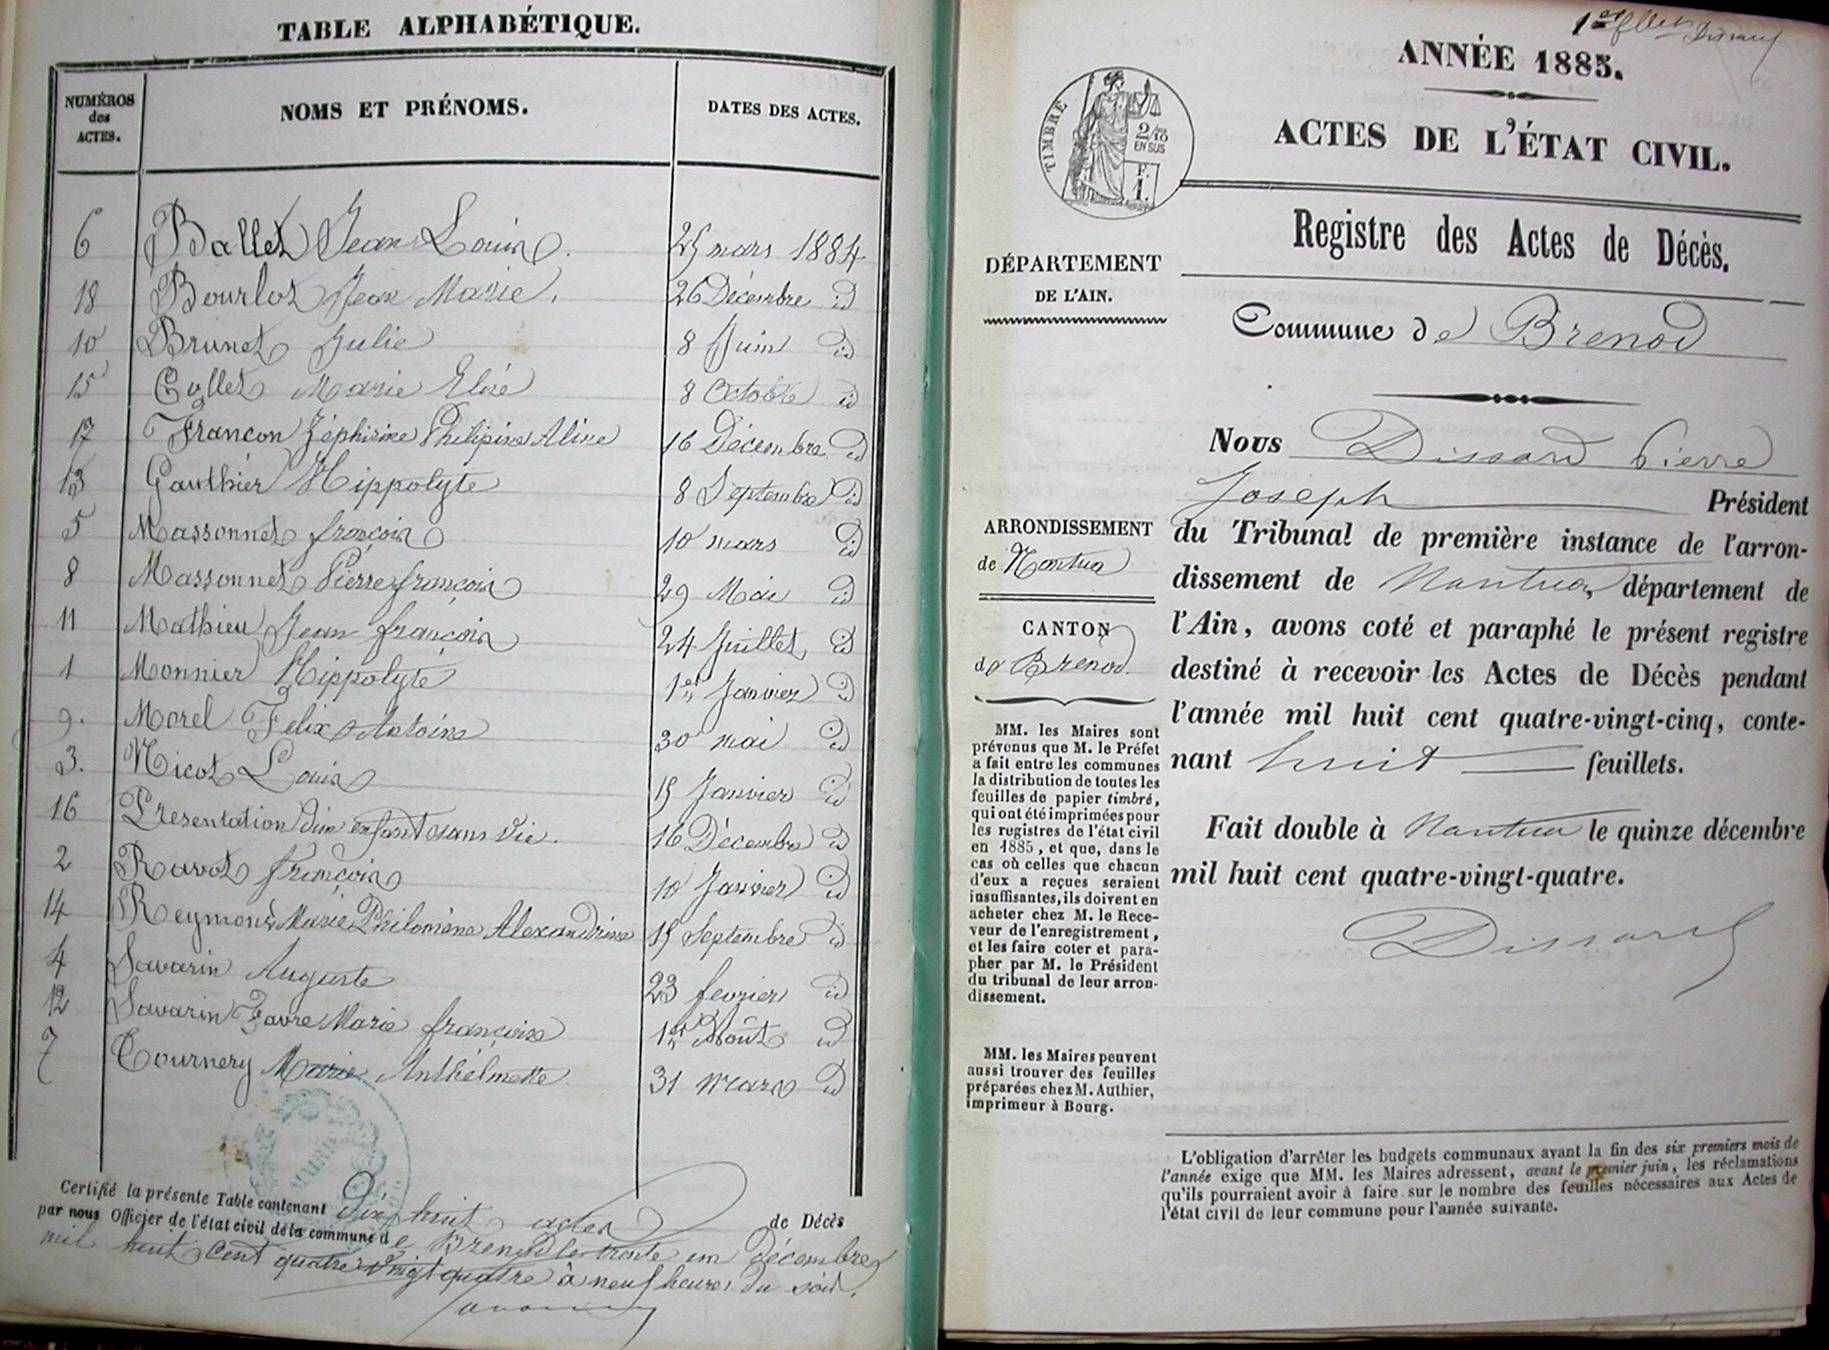 TABLE ALPHABÉTIQUE.
NUMÉROS des ACTES. NOMS ET PRÉNOMS. DATES DES ACTES.
6 Ballet Jean Louis. 25 mars 1884
18 Bourlot Jean Marie. 26 Décembre id
10 Brunet Julie 8 Juin id
15 Collet Marie Elise 8 Octobre id
17 Françon Zéphirine Philipine Aline 16 Décembre id
13 Gauthier Hippolyte 8 Septembre id
5 Massonnet françois 10 mars id
8 Massonnet Pierre françois 29 Mai id
11 Mathieu Jean françois 24 Juillet id
1 Monnier Hippolyte 1er Janvier id
9. Morel Felix Antoine 30 mai id
3. Nicot Louis 15 Janvier id
16 Presentation d'un enfant sans vie. 16 Décembre id
2 Ravot françois 10 Janvier id
14 Reymond Marie Philomène Alexandrine 15 Septembre id
4 Savarin Auguste 23 fevrier id
12 Savarin Favre Marie françoise 1er Août id
7 Tournery Marie Anthelmette 31 mars id
MAIRIE
Certifié la présente Table contenant Dix huit actes de Décès
par nous Officier de l'état civil de la commune de Brenod le trente un Décembre
mil huit cent quatre vingt quatre à neuf heures du soir.
1er feuillet Dissard
ANNÉE 1885.
TIMBRE
2/10
EN SUS
F.
1.
ACTES DE L'ÉTAT CIVIL.
Registre des Actes de Décès.
DÉPARTEMENT
DE L'AIN.
Commune de Brenod
Nous Dissard Pierre
Joseph Président
du Tribunal de première instance de l'arron-
dissement de Nantua, département de
l'Ain, avons coté et paraphé le présent registre
destiné à recevoir les Actes de Décès pendant
l'année mil huit cent quatre-vingt-cinq, conte-
nant huit feuillets.
Fait double à Nantua le quinze décembre
mil huit cent quatre-vingt-quatre.
Dissard
ARRONDISSEMENT
de Nantua
CANTON
de Brenod.
MM. les Maires sont
prévenus que M. le Préfet
a fait entre les communes
la distribution de toutes les
feuilles de papier timbré,
qui ont été imprimées pour
les registres de l'état civil
en 1885, et que, dans le
cas où celles que chacun
d'eux a reçues seraient
insuffisantes, ils doivent en
acheter chez M. le Rece-
veur de l'enregistrement,
et les faire coter et para-
pher par M. le Président
du tribunal de leur arron-
dissement.
MM. les Maires peuvent
aussi trouver des feuilles
préparées chez M. Authier,
imprimeur à Bourg.
L'obligation d'arrêter les budgets communaux avant la fin des six premiers mois de
l'année exige que MM. les Maires adressent, avant le premier juin, les réclamations
qu'ils pourraient avoir à faire sur le nombre des feuilles nécessaires aux Actes de
l'état civil de leur commune pour l'année suivante.